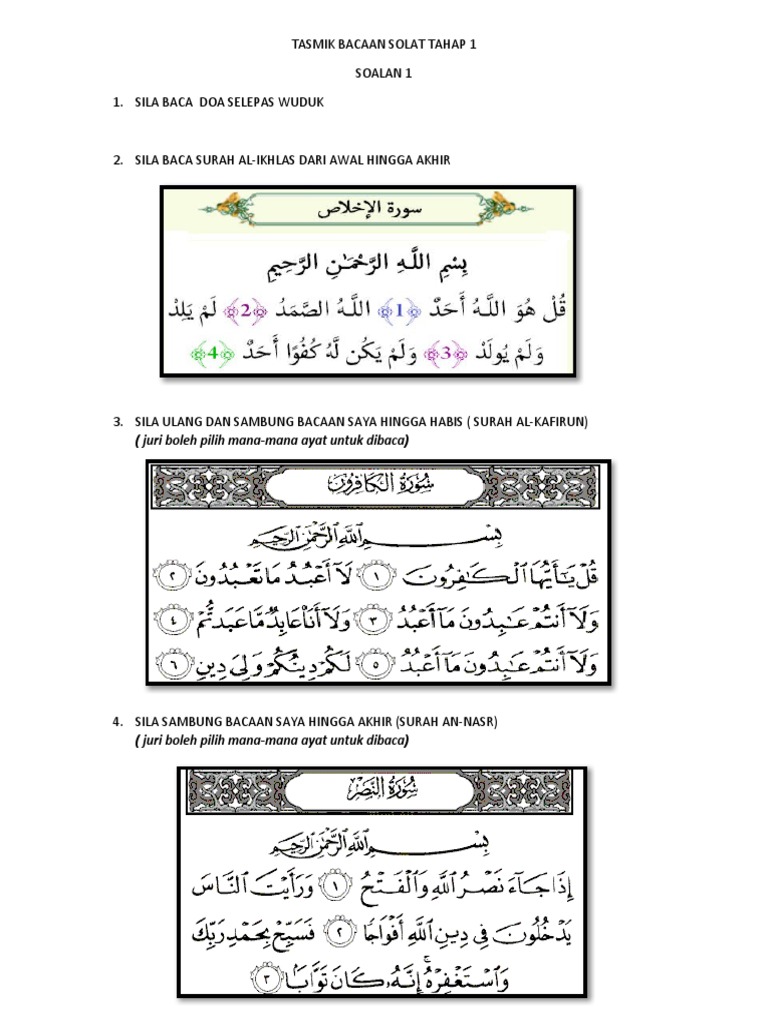 TASMIK BACAAN SOLAT TAHAP 1
SOALAN 1
1. SILA BACA DOA SELEPAS WUDUK
2. SILA BACA SURAH AL-IKHLAS DARI AWAL HINGGA AKHIR
سورة الإخلاص
بِسْمِ اللَّهِ الرَّحْمَٰنِ الرَّحِيمِ
قُلْ هُوَ اللَّهُ أَحَدٌ ﴿1﴾ اللَّهُ الصَّمَدُ ﴿2﴾ لَمْ يَلِدْ
وَلَمْ يُولَدْ ﴿3﴾ وَلَمْ يَكُن لَّهُ كُفُوًا أَحَدٌ ﴿4﴾
3. SILA ULANG DAN SAMBUNG BACAAN SAYA HINGGA HABIS ( SURAH AL-KAFIRUN)
( juri boleh pilih mana-mana ayat untuk dibaca)
سُورَةُ الكَافِرُونَ
بِسْمِ اللَّهِ الرَّحْمَٰنِ الرَّحِيمِ
قُلْ يَٰٓأَيُّهَا ٱلْكَٰفِرُونَ ١ لَآ أَعْبُدُ مَا تَعْبُدُونَ ٢
وَلَآ أَنتُمْ عَٰبِدُونَ مَآ أَعْبُدُ ٣ وَلَآ أَنَا۠ عَابِدٌ مَّا عَبَدتُّمْ ٤
وَلَآ أَنتُمْ عَٰبِدُونَ مَآ أَعْبُدُ ٥ لَكُمْ دِينُكُمْ وَلِىَ دِينِ ٦
4. SILA SAMBUNG BACAAN SAYA HINGGA AKHIR (SURAH AN-NASR)
( juri boleh pilih mana-mana ayat untuk dibaca)
سُورَةُ النَّصْرِ
بِسْمِ اللَّهِ الرَّحْمَٰنِ الرَّحِيمِ
إِذَا جَآءَ نَصْرُ ٱللَّهِ وَٱلْفَتْحُ ١ وَرَأَيْتَ ٱلنَّاسَ
يَدْخُلُونَ فِى دِينِ ٱللَّهِ أَفْوَاجًا ٢ فَسَبِّحْ بِحَمْدِ رَبِّكَ
وَٱسْتَغْفِرْهُ ۚ إِنَّهُۥ كَانَ تَوَّابًۢا ٣